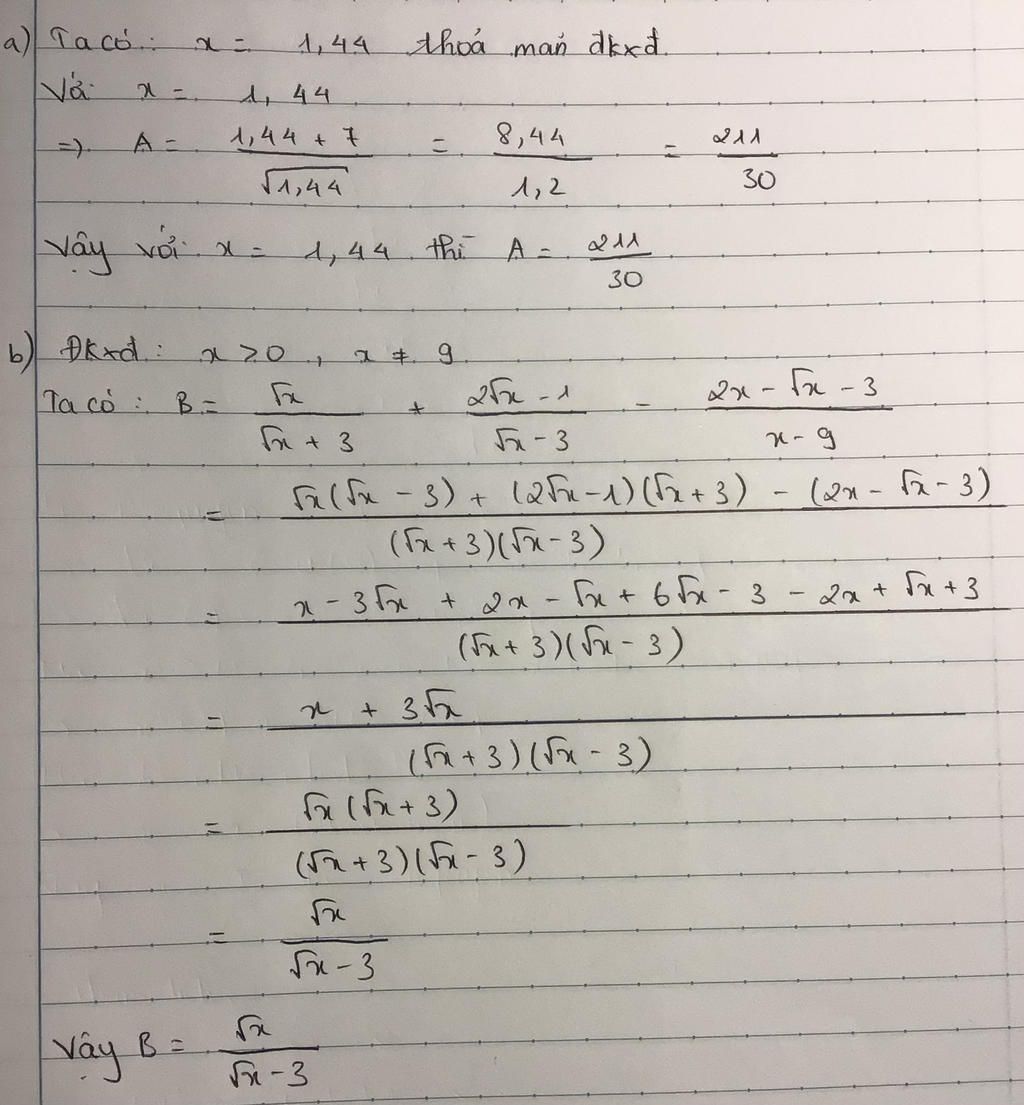 a) Ta có: x = 1,44 thoả mãn đkxđ.
Với x = 1,44
=> A = (1,44 + 7)/√1,44 = 8,44/1,2 = 211/30
Vậy với x = 1,44 thì A = 211/30
b) Đkxđ: x > 0, x ≠ 9
Ta có: B = √x/(√x + 3) + (2√x - 1)/(√x - 3) - (2x - √x - 3)/(x - 9)
= (√x(√x - 3) + (2√x - 1)(√x + 3) - (2x - √x - 3))/((√x + 3)(√x - 3))
= (x - 3√x + 2x - √x + 6√x - 3 - 2x + √x + 3)/((√x + 3)(√x - 3))
= (x + 3√x)/((√x + 3)(√x - 3))
= (√x(√x + 3))/((√x + 3)(√x - 3))
= √x/(√x - 3)
Vậy B = √x/(√x - 3)